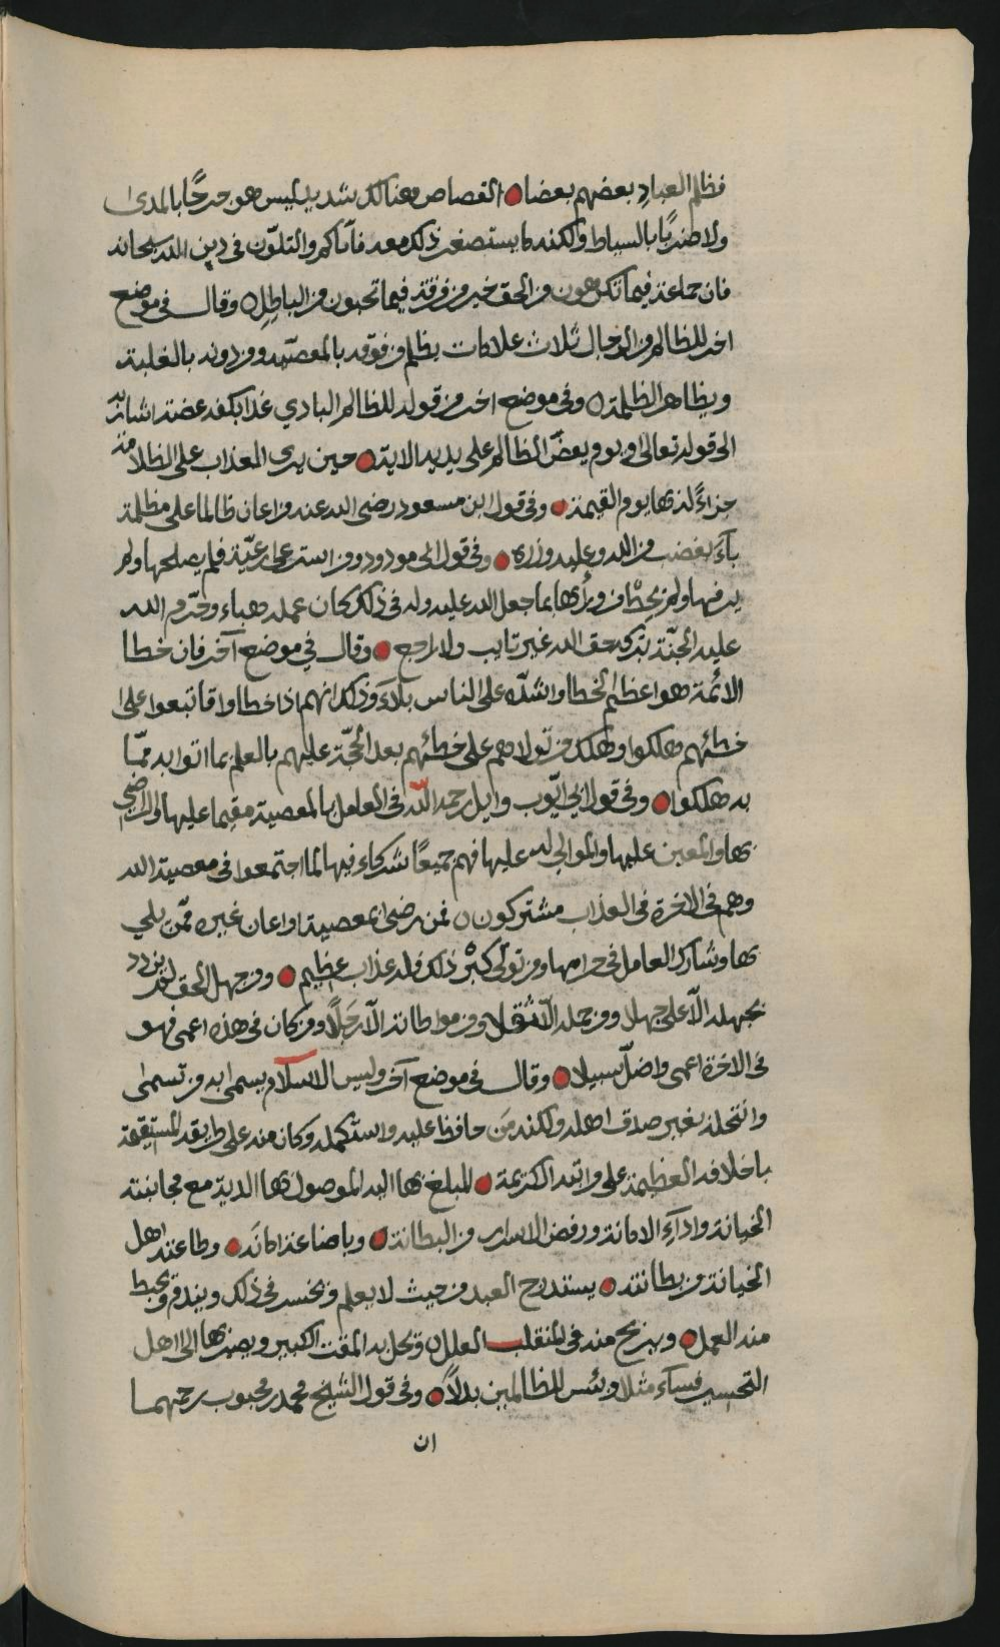 فظلم العباد بعضهم بعضا القصاص هنالك شديد ليس هو جرحًا بالمدى
ولا ضربًا بالسياط ولكنه ما يستصغر ذلك معه فاياكم والتلوّن في دين الله سبحانه
فان جماعة فيما تكرهون من الحق خير من فرقة فيما تحبون من الباطل وقال في موضع
اخر للظالم من الرجال ثلاث علامات يظلم من فوقه بالمعصية ومن دونه بالغلبة
ويظاهر الظلمة وفي موضع اخر من قوله للظالم البادي غدا بكفه عضة اشارة
الى قوله تعالى ويوم يعضّ الظالم على يديه الاية حين يرى المعذاب على الظلامة
جزاءً لذهابه يوم القيمة وفي قول ابن مسعود رضي الله عنه من اعان ظالما على مظلمة
باءَ بغضب من الله وعليه وزره وفي قول ابي مودود ومن استرعى رعيّة فلم يصلحها ولم
يدفنها ولم يحط من ورأها بما جعل الله عليه وله في ذلك كان عمله هباء وحرّم الله
عليه الجنّة بتركه حق الله غير تايب ولا راجع وقال في موضع آخر فان خطا
الائمة هو اعظم الخطا واشدّه على الناس بلاءً وذلك انهم اذا خطاوا فاتبعوا على
خطئهم هلكوا وهلك من تولاهم على خطئهم بعد الحجّة عليهم بالعلم بما اتوا به ممّا
به هلكوا وفي قول ابي ايّوب وايل رحمه الله في العامل بالمعصية مقيما عليها والراضي
بها والمعين عليها والموالي له عليها فهم جميعًا شركاء فيها لما اجتمعوا في معصية الله
وهم في الاخرة في العذاب مشتركون فمن رضي بمعصية او اعان غيره ممّن بلي
بها وشارك العامل في حرامها ومن تولّى كبْر ذلك فله عذاب عظيم ومن جهل الحق لم يزدد
بجهله الّا على جهل ومن حمله الّا ثقلا ومن مواطاته الّا رجلًا ومن كان في هذه اعمى فهو
في الاخرة اعمى واضلّ سبيلا وقال في موضع آخر وليس الاسلام يسمى به من تسمى
وانتحله بغير صدق اهله ولكنه مَن حافظ عليه واستكمله وكان منه على طريقه المستقيمة
باخلاقه العظيمة على مراتبه الكريمة المبلغ بها اليه الموصول بها الديه مع مجانبة
الخيانة واداءِ الامانة ورفض الاسرار من البطانة وباضاعة امانَه وطاعته اهل
الخيانة من بطانته يستدرج العبد من حيث لا يعلم ويخسر في ذلك ويندم ويحبط
منه العمل ويربح منه في المنقلب العلل ويحل به المقت الكبير ويصير بها الى اهل
التخسير فساء مثلا وبئس للظالمين بدلًا وفي قول الشيخ محمد بن محبوب رحمهما
ان